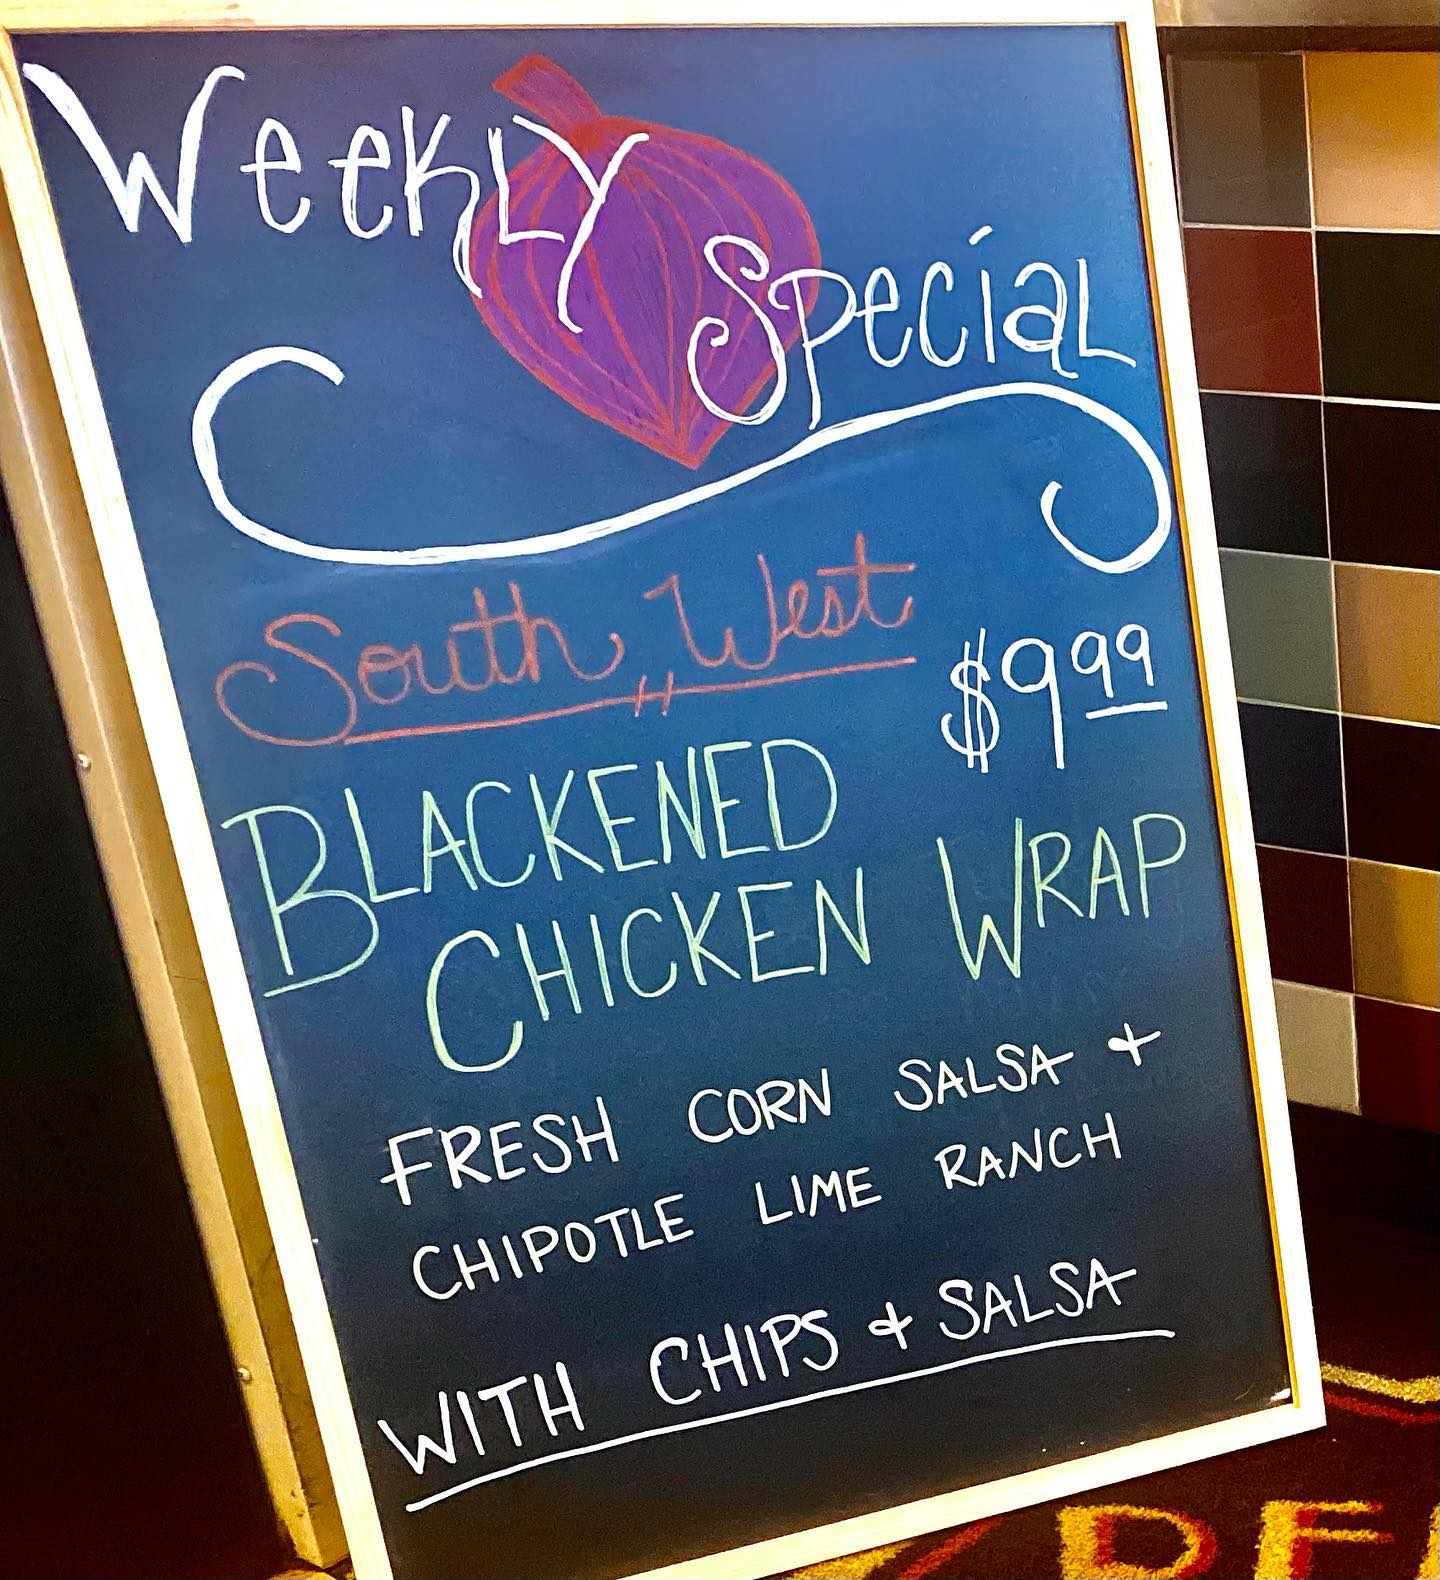 Weekly
Special
South West
$9.99
BLACKENED
CHICKEN WRAP
FRESH CORN SALSA &
CHIPOTLE LIME RANCH
WITH CHIPS & SALSA